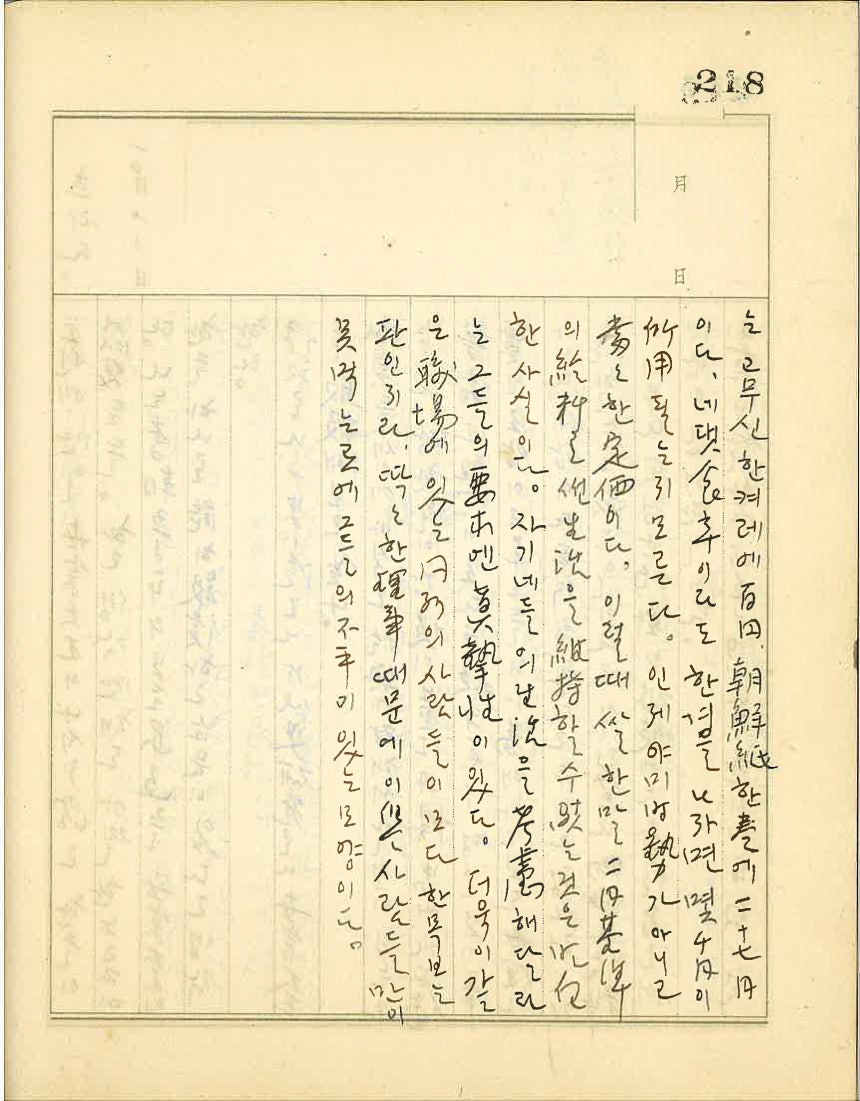 218
月
日
는 고무신 한켜레에 百円. 朝鮮紙 한 卷에 二十七円
이다. 네댓食후이라도 한겨를 나자면 몇 千円이
所用될는지 모른다. 인제 야미 가 아니고
當〻한 定価이다. 이럴때 쌀 한말 二円基準
의 給料로 生活을 維持할 수 없는 것은
한 사실이다. 자기네들의 生活을 考慮해달라
는 그들의 要求엔 眞摯性이 있다. 더욱이 같
은 職場에 있는 사람들이 모다 한목보는
판인지라. 딱〻한 理事때문에 이 사람들만이
못먹는 곳에 그들의 不平이 있는 모양이다.